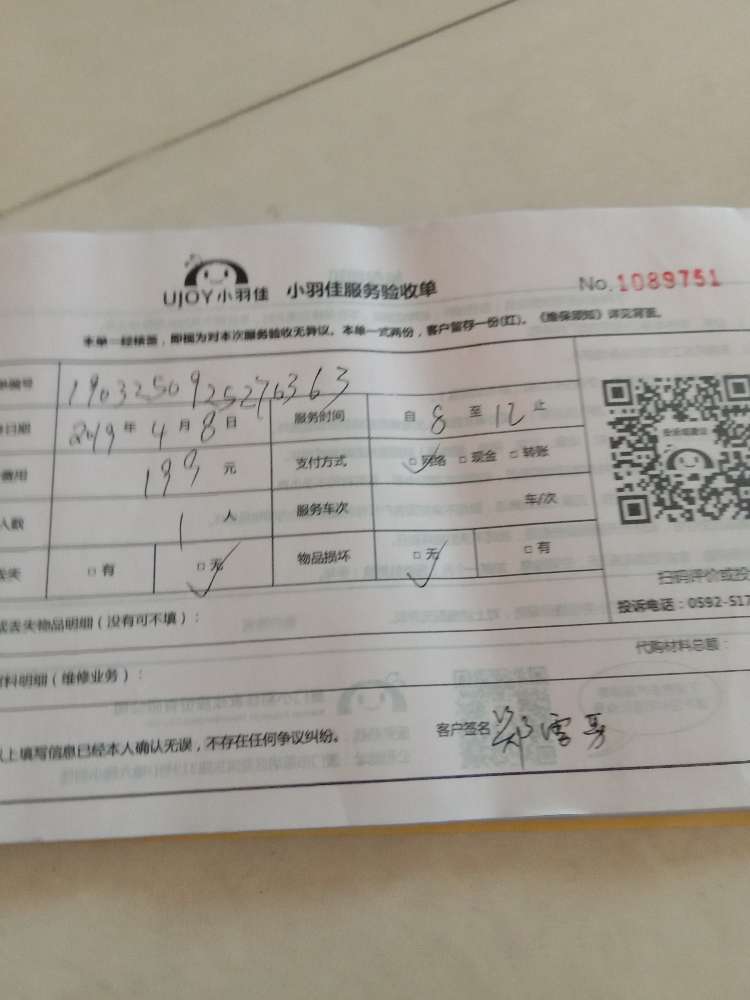 UJOY小羽佳 小羽佳服务验收单 No.1089751
本单一经核签，即视为对本次服务验收无异议。本单一式两份，客户留存一份(红)。《维保须知》详见背面。
编号 1903250925276363
日期 2019年4月8日 服务时间 自8至12止
费用 199元 支付方式 □网络 □现金 □转账
人数 1人 服务车次 车/次
丢失 □有 □无 物品损坏 □无 □有
扫码评价或投
投诉电话：0592-517
或丢失物品明细（没有可不填）：
代购材料总额：
材料明细（维修业务）：
以上填写信息已经本人确认无误，不存在任何争议纠纷。 客户签名